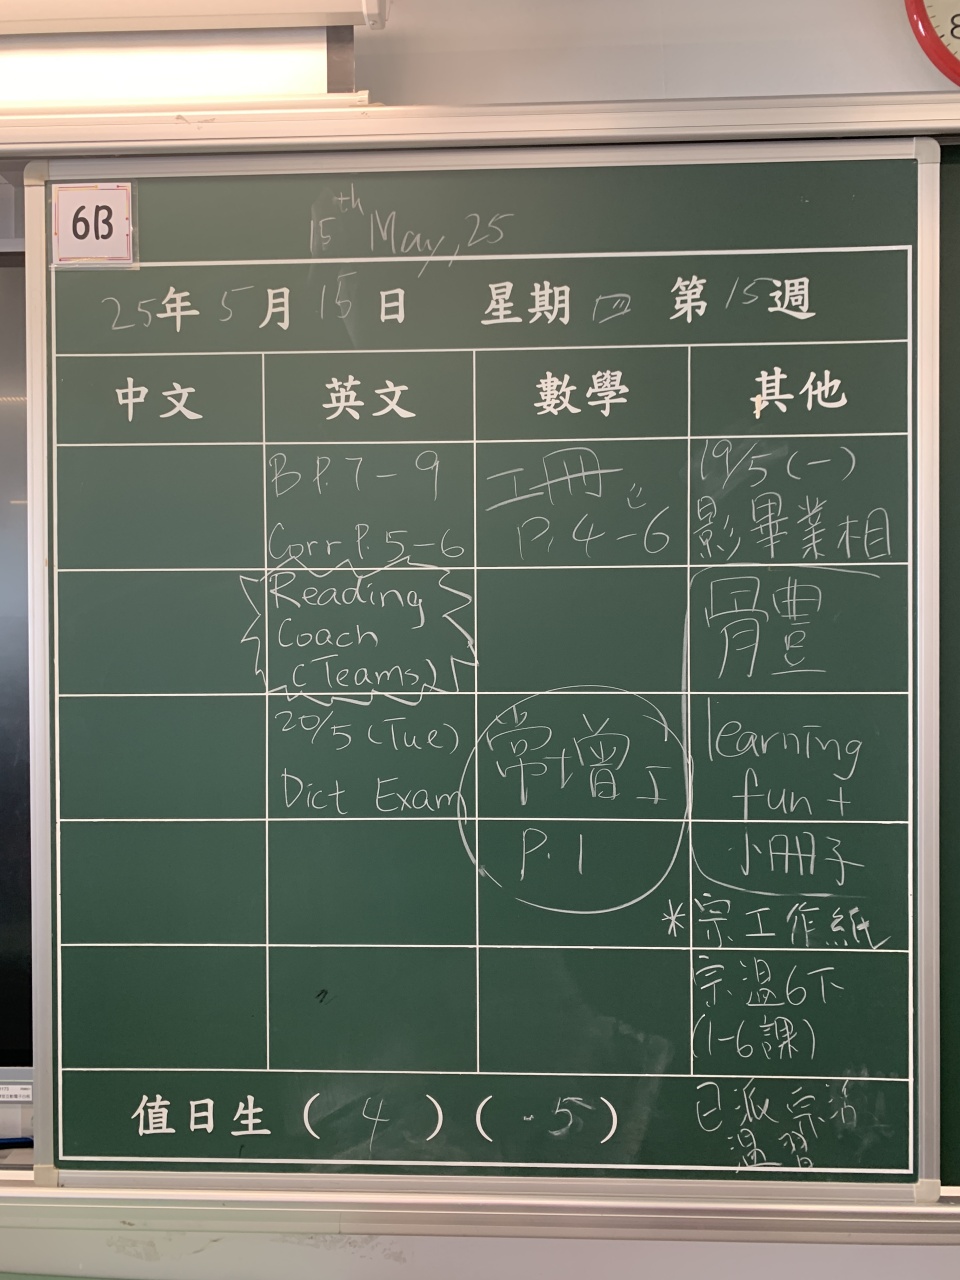 6B
15th May, 25
25年 5月 15日 星期 四 第 15 週
中文 英文 數學 其他
B P.7-9
Corr P. 5-6
Reading
Coach
(Teams)
20/5 (Tue)
Dict Exam
工冊
P.4-6
常增工
P.1
19/5 (一)
影畢業相
體
learning
fun +
小冊子
*宗工作紙
宗溫6下
(1-6課)
已派宗活
溫習
值日生 ( 4 ) ( 5 )